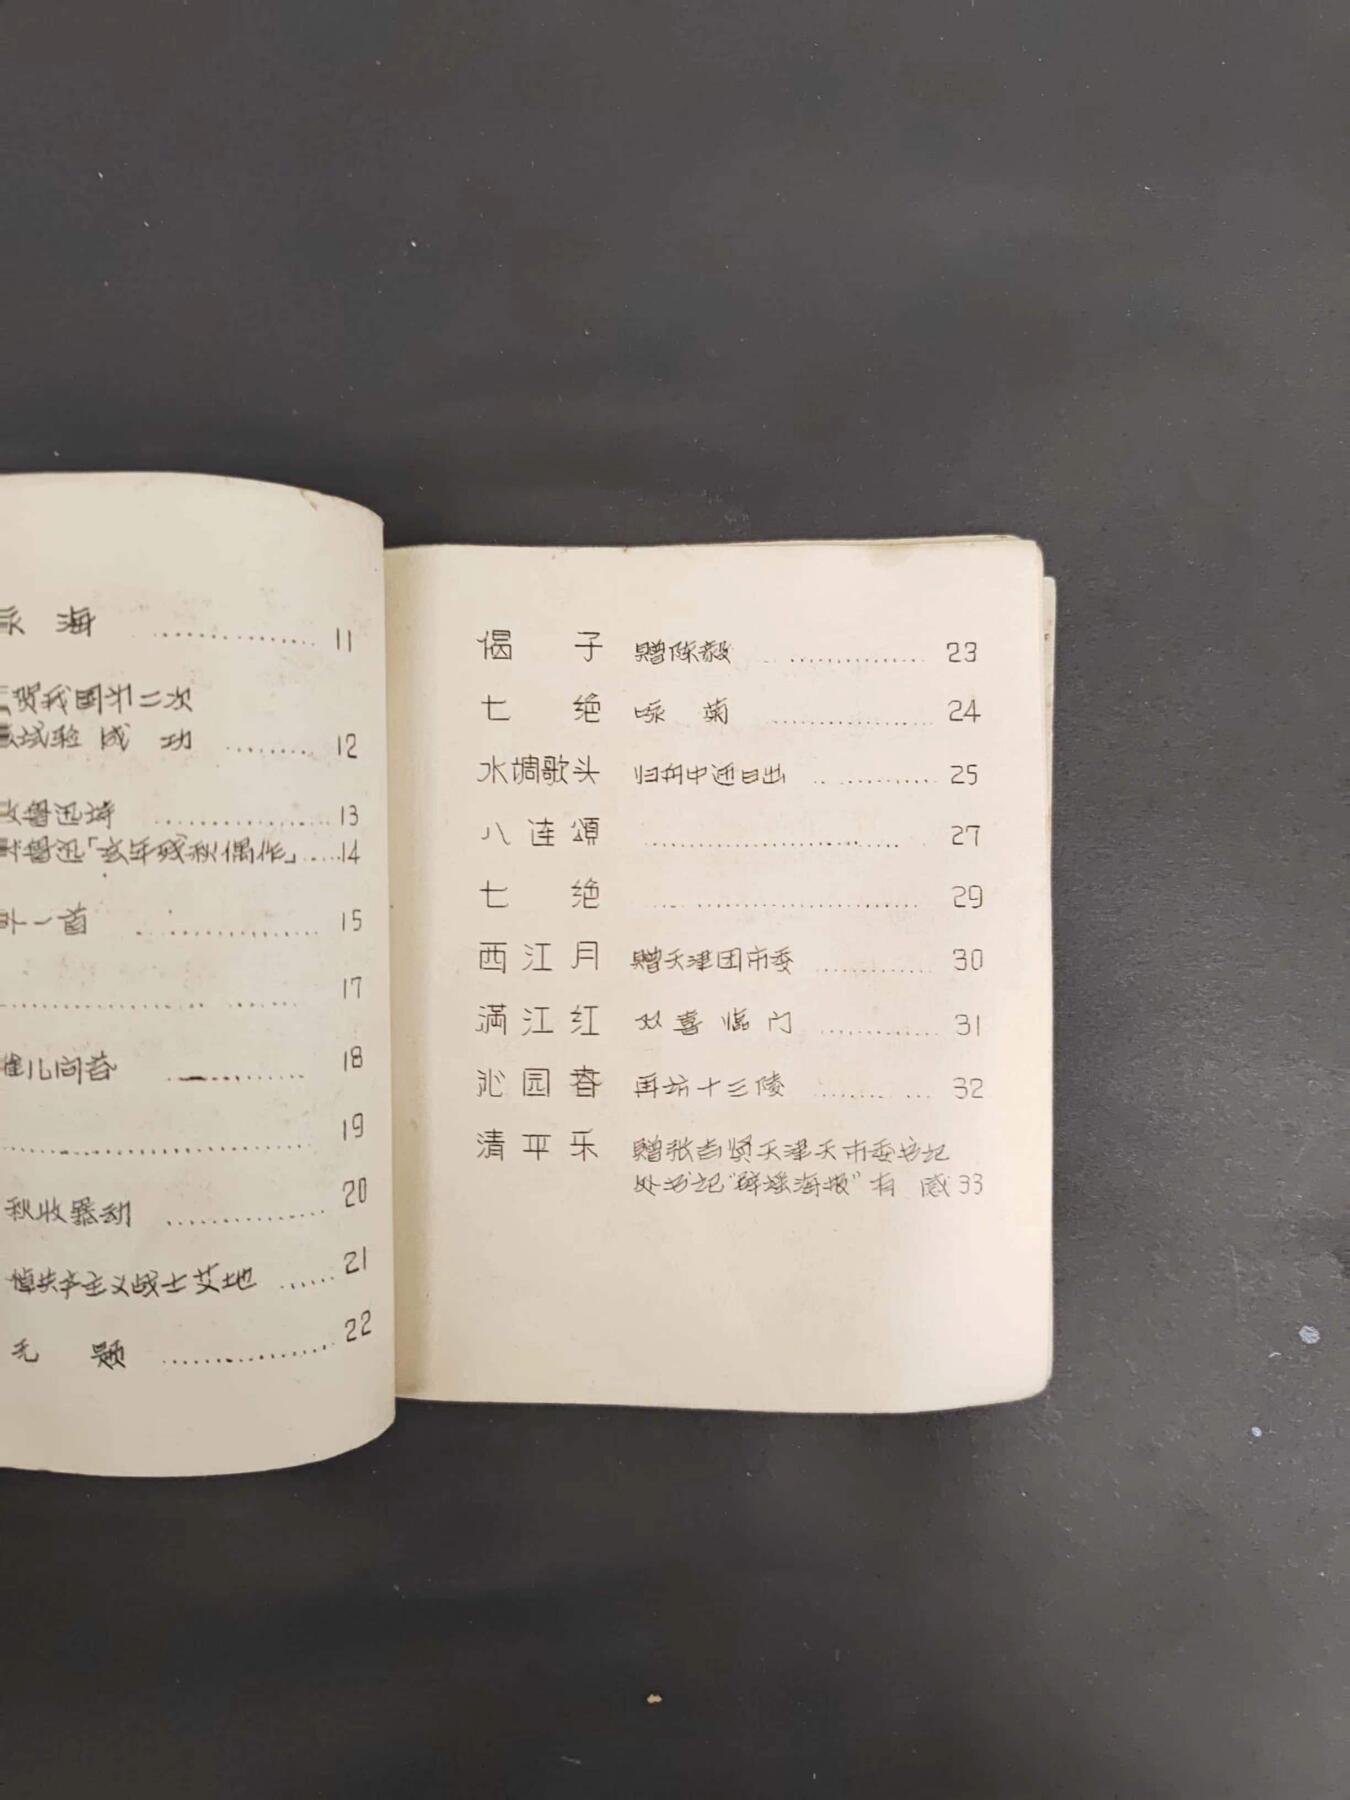 咏海 ............... 11
贺我国第二次
试验成功 ........ 12
改鲁迅诗 ............... 13
鲁迅「亥年残秋偶作」.....14
外一首 ............... 15
............... 17
雀儿问答 ............ 18
............... 19
秋收暴动 ............ 20
悼共产主义战士艾地 ...... 21
无题 ............... 22
偈子 赠陈毅 ............... 23
七绝 咏菊 ............... 24
水调歌头 归舟中迎日出 ............ 25
八连頌 ............... 27
七绝 ............... 29
西江月 赠天津团市委 ............ 30
満江红 双喜临门 ............ 31
沁园春 再访十三陵 ............ 32
清平乐 赠张吉贤天津天市委书记
处书记“辟谣海报”有感 33